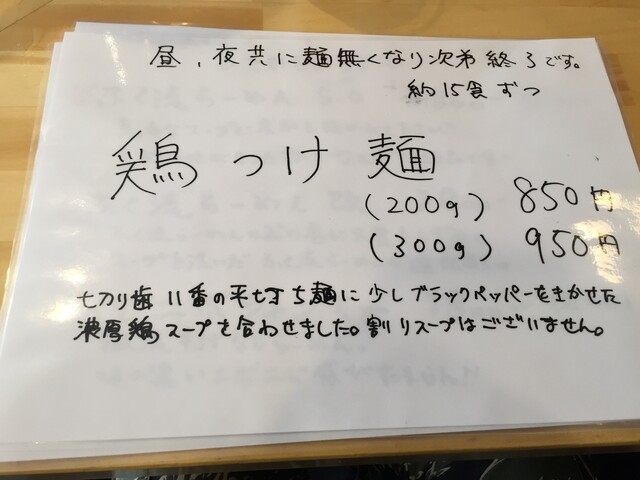 昼、夜共に麺無くなり次第終了です。
約15食ずつ
鶏つけ麺
(200g) 850円
(300g) 950円
切り歯11番の平打ち麺に少しブラックペッパーをきかせた
濃厚鶏スープを合わせました。割りスープはございません。